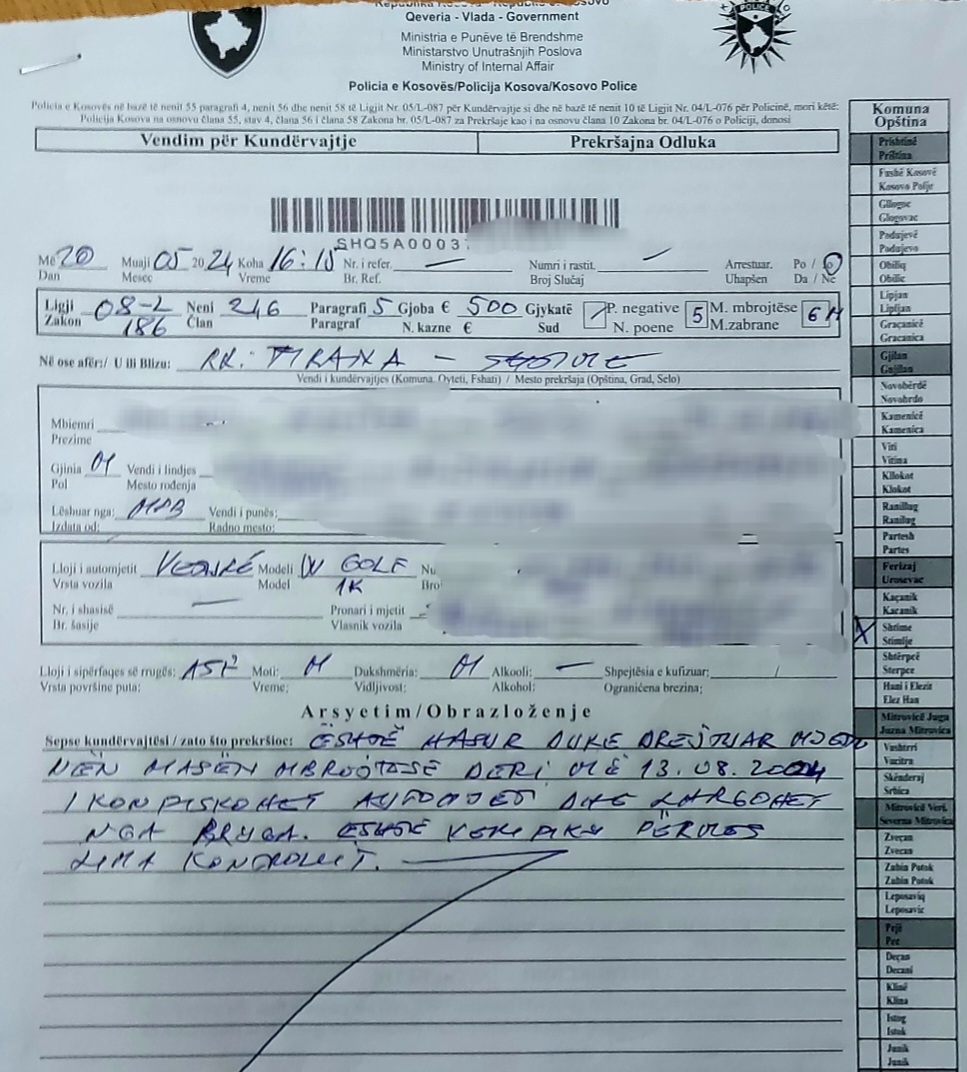 Qeveria - Vlada - Government
Ministria e Punëve të Brendshme
Ministarstvo Unutrašnjih Poslova
Ministry of Internal Affair
Policia e Kosovës/Policija Kosova/Kosovo Police
POLICE
Policia e Kosovës në bazë të nenit 55 paragrafi 4, nenit 56 dhe nenit 58 të Ligjit Nr. 05/L-087 për Kundërvajtje si dhe në bazë të nenit 10 të Ligjit Nr. 04/L-076 për Policinë, mori këtë:
Policija Kosova na osnovu člana 55, stav 4, člana 56 i člana 58 Zakona br. 05/L-087 za Prekršaje kao i na osnovu člana 10 Zakona br. 04/L-076 o Policiji, donosi
Vendim për Kundërvajtje Prekršajna Odluka
SHQ5A0003
Më 20 Muaji 05 2024 Koha 16:15 Nr. i refer. — Numri i rastit. Arrestuar. Po / Jo
Dan Mesec Vreme Br. Ref. Broj Slučaj Uhapšen Da / Ne
Ligji 08-L Neni 246 Paragrafi 5 Gjoba € 500 Gjykatë / P. negative 5 M. mbrojtëse 6M
Zakon 186 Član Paragraf N. kazne € Sud N. poene M.zabrane
Në ose afër:/ U ili Blizu: RR: TIRANA - SHTIME
Vendi i kundërvajtjes (Komuna, Qyteti, Fshati) / Mesto prekršaja (Opština, Grad, Selo)
Mbiemri
Prezime
Gjinia M Vendi i lindjes
Pol Mesto rođenja
Lëshuar nga: MPB Vendi i punës:
Izdata od: Radno mesto:
Lloji i automjetit VETURË Modeli VW GOLF Nu
Vrsta vozila Model 1K Bro
Nr. i shasisë — Pronari i mjetit
Br. šasije Vlasnik vozila
Lloji i sipërfaqes së rrugës: ASF Moti: M Dukshmëria: M Alkooli: — Shpejtësia e kufizuar: /
Vrsta površine puta: Vreme: Vidljivost: Alkohol: Ograničena brezina:
Arsyetim/Obrazloženje
Sepse kundërvajtësi / zato što prekršioc: ËSHTË HASUR DUKE DREJTUAR MJETIN
NËN MASËN MBROJTËSE DERI MË 13.08.2024
I KONFISKOHET AUTOMJETI DHE LARGOHET
NGA RRUGA. ËSHTË VERIFIKU PËRMES
KONTROLLIT.
Komuna
Opština
Prishtinë
Priština
Fushë Kosovë
Kosovo Polje
Gllogoc
Glogovac
Podujevë
Podujevo
Obiliq
Obilic
Lipjan
Lipljan
Graçanicë
Gracanica
Gjilan
Gnjilan
Novobërdë
Novobrdo
Kamenicë
Kamenica
Viti
Vitina
Kllokot
Klokot
Ranillug
Ranilug
Partesh
Partes
Ferizaj
Urosevac
Kaçanik
Kacanik
X Shtime
Stimlje
Shtërpcë
Sterpce
Hani i Elezit
Elez Han
Mitrovicë Jugu
Juzna Mitrovica
Vushtrri
Vucitra
Skënderaj
Srbica
Mitrovicë Veri.
Severna Mitrovica
Zveçan
Zvecan
Zubin Potok
Zubin Potok
Leposaviq
Leposavic
Pejë
Pec
Deçan
Decani
Klinë
Klina
Istog
Istok
Junik
Junik